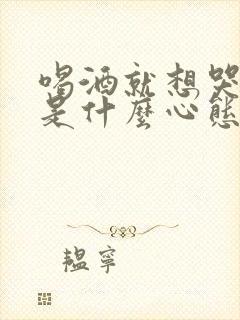 喝酒就想哭
是什麼心態
韞寧